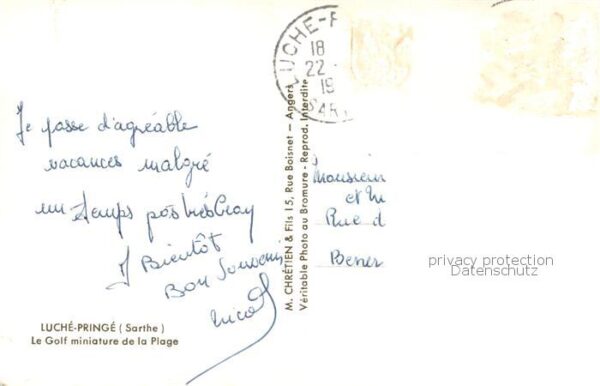 Je passe d'agréable
vacances malgré
un temps pas très
Bientôt
Bon Souvenir
LUCHÉ-PRINGÉ (Sarthe)
Le Golf miniature de la Plage
M. CHRÉTIEN & Fils 15, Rue Boisnet — Angers
Véritable Photo au Bromure - Reprod. Interdite
LUCHE-P
18
22
19
SAR
Monsieur
et M
Rue d
Bener
privacy protection
Datenschutz